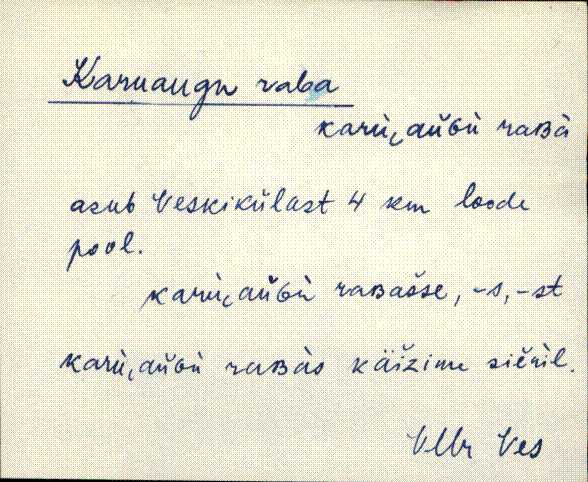 Karuaugu raba
karù‿aŭɢù raʙà
asub Veskikülast 4 km loode
pool.
karù‿aŭɢù raʙašse, -s, -st
karù‿aŭɢù raʙàs käĭzime siěǹil.
VMr Ves